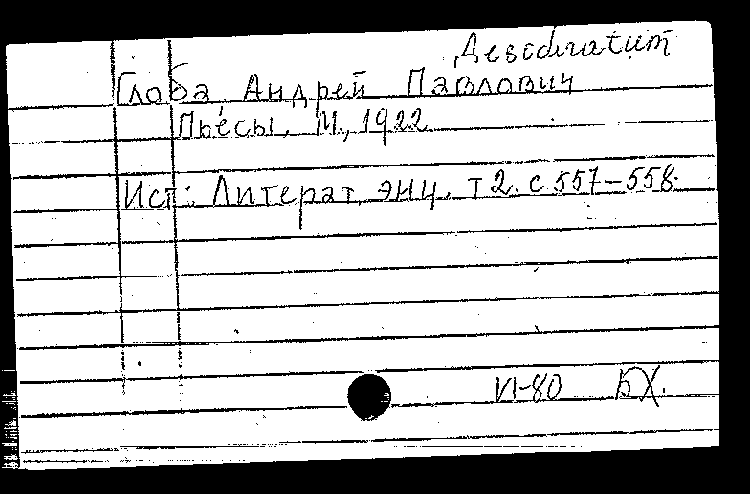 Desideratum
Глоба Андрей Павлович
Пьесы. М., 1922
Ист: Литерат. энц. т 2. с 557–558.
VI-80 БХ.